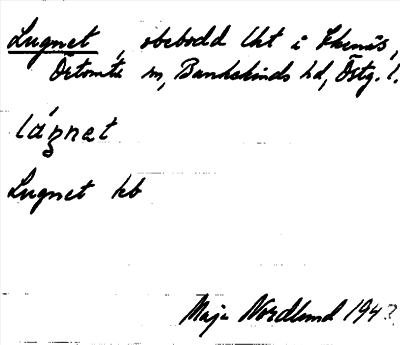 Lugnet, obebodd lht i Ekenäs,
Örtomta sn, Bankekinds hd, Östg. l.
láŋnet
Lugnet hb
Maja Nordlund 194